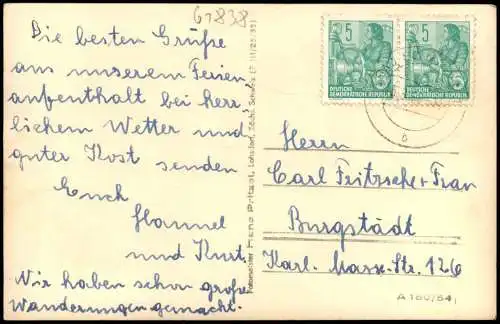 67838
Die besten Grüße
aus unserem Ferien-
aufenthalt bei herr-
lichem Wetter und
guter Kost senden
Euch
Hannel
und Kurt.
Wir haben schon große
Wanderungen gemacht.
Fotomeister Hans Pritzel, Lohsdorf, Sächs. Schweiz
5 5
DEUTSCHE DEMOKRATISCHE REPUBLIK
DEUTSCHE DEMOKRATISCHE REPUBLIK
Herrn
Carl Fritzsche + Frau
Burgstädt
Karl-Marx-Str. 126
A 160/54